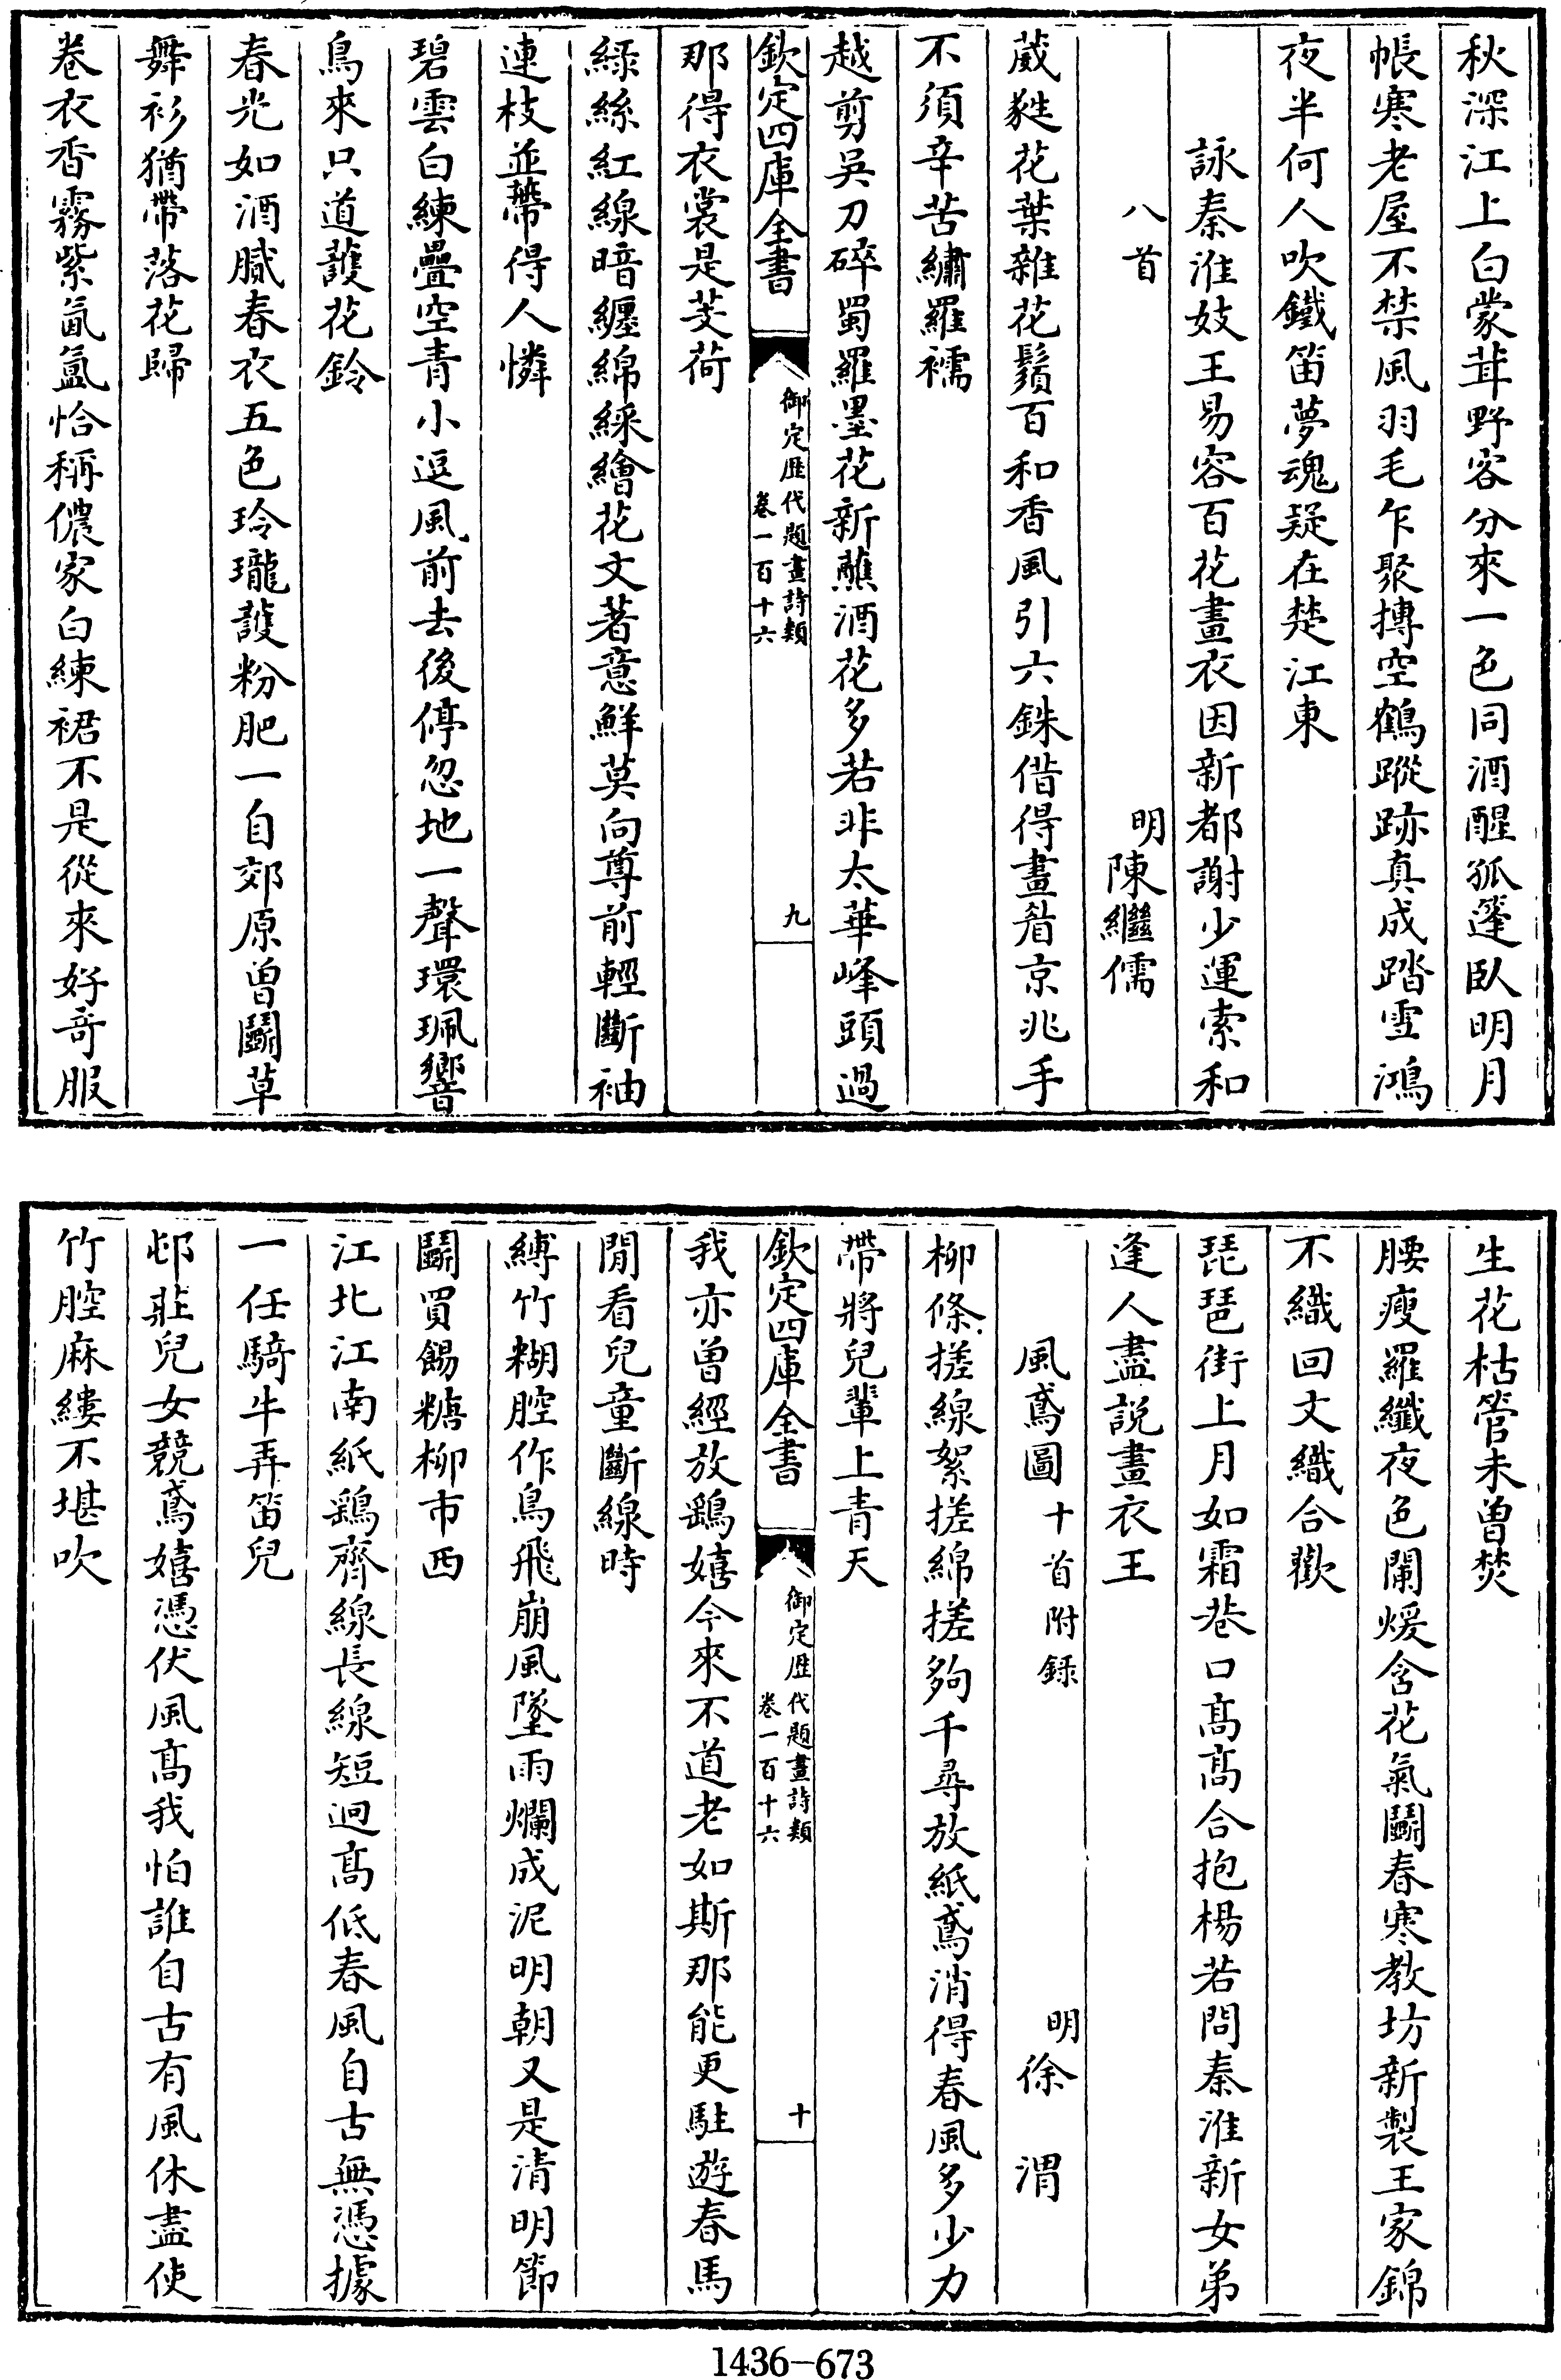 秋深江上白蒙茸野客分來一色同酒醒孤篷臥明月
帳寒老屋不禁風羽毛乍聚摶空鶴蹤跡真成踏雪鴻
夜半何人吹鐵笛夢魂疑在楚江東
詠秦淮妓王易容百花畫衣因新都謝少運索和
八首
明陳繼儒
葳蕤花葉雜花鬚百和香風引六銖借得畫眉京兆手
不須辛苦繡羅襦
越剪吳刀碎蜀羅墨花新蘸酒花多若非太華峰頭過
欽定四庫全書
御定歷代題畫詩類
卷一百十六
九
那得衣裳是芰荷
綠絲紅線暗纏綿綵繪花文著意鮮莫向尊前輕斷袖
連枝並蔕得人憐
碧雲白練疊空青小逗風前去後停忽地一聲環珮響
鳥來只道護花鈴
春光如酒膩春衣五色玲瓏護粉肥一自郊原曾鬬草
舞衫猶帶落花歸
卷衣香霧紫氤氳恰稱儂家白練裙不是從來好奇服
生花枯管未曾焚
腰瘦羅纖夜色闌煖含花氣鬬春寒教坊新製王家錦
不織回文織合歡
琵琶街上月如霜巷口高高合抱楊若問秦淮新女弟
逢人盡說畫衣王
風鳶圖十首附錄
明徐渭
柳條搓線絮搓綿搓夠千尋放紙鳶消得春風多少力
帶將兒輩上青天
欽定四庫全書
御定歷代題畫詩類
卷一百十六
十
我亦曾經放鷂嬉今來不道老如斯那能更駐遊春馬
閒看兒童斷線時
縛竹糊腔作鳥飛崩風墜雨爛成泥明朝又是清明節
鬬買餳糖柳市西
江北江南紙鷂齊線長線短迥高低春風自古無憑據
一任騎牛弄笛兒
邨莊兒女競鳶嬉憑伏風高我怕誰自古有風休盡使
竹腔麻縷不堪吹
1436-673